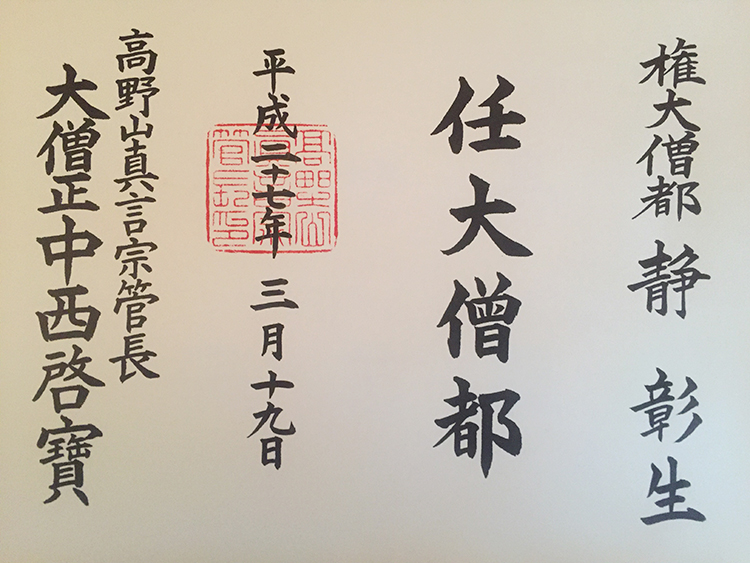 権大僧都 静 彰生
任大僧都
平成二十七年 三月十九日
高野山真言宗管長
大僧正中西啓寶